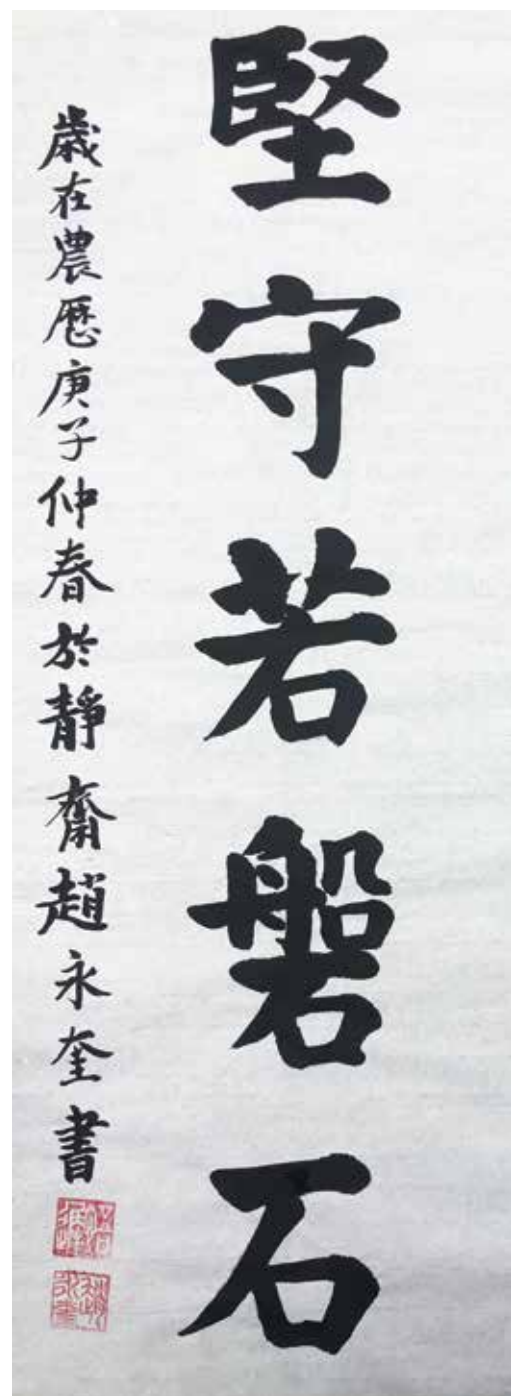 堅守若磐石
歲在農曆庚子仲春於靜齋趙永奎書